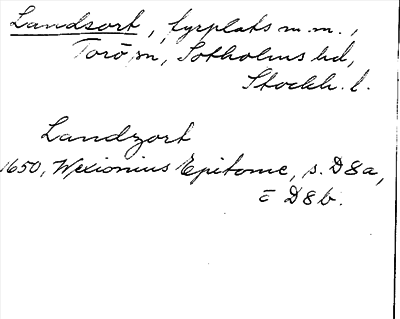 Landsort, fyrplats m.m.,
Torö sn, Sotholms hd,
Stockh. l.
Landzort
1650, Wexionius Epitome, s. D8a,
c̄ D8b.